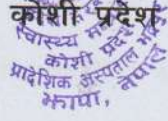 कोशी प्रदेश
स्वास्थ्य
कोशी प्रदेश
प्रादेशिक अस्पताल
झापा, नेपाल